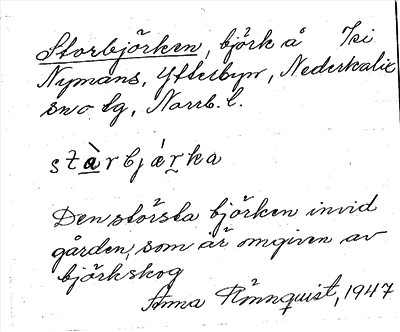 Storbjörken, björk å Isi
Nymans, Ytterbyn, Nederkalix
sn o tg, Norrb. l.
stàrbjárka
Den största björken invid
gården, som är omgiven av
björkskog
Anna Rönnquist, 1947